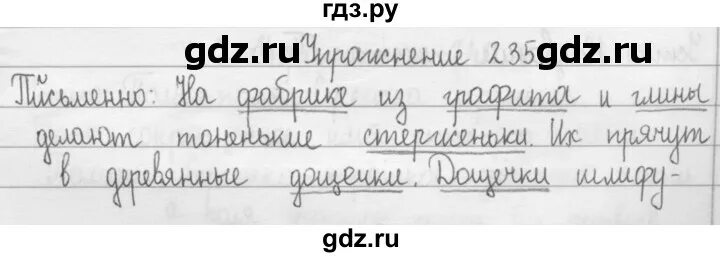 гдз.ру
gdz.ru gdz.ru
Упражнение 235
Письменно: На фабрике из графита и глины
делают тоненькие стерженьки. Их прячут
в деревянные дощечки. Дощечки шлифу-
gdz.ru gdz.ru
gdz.ru